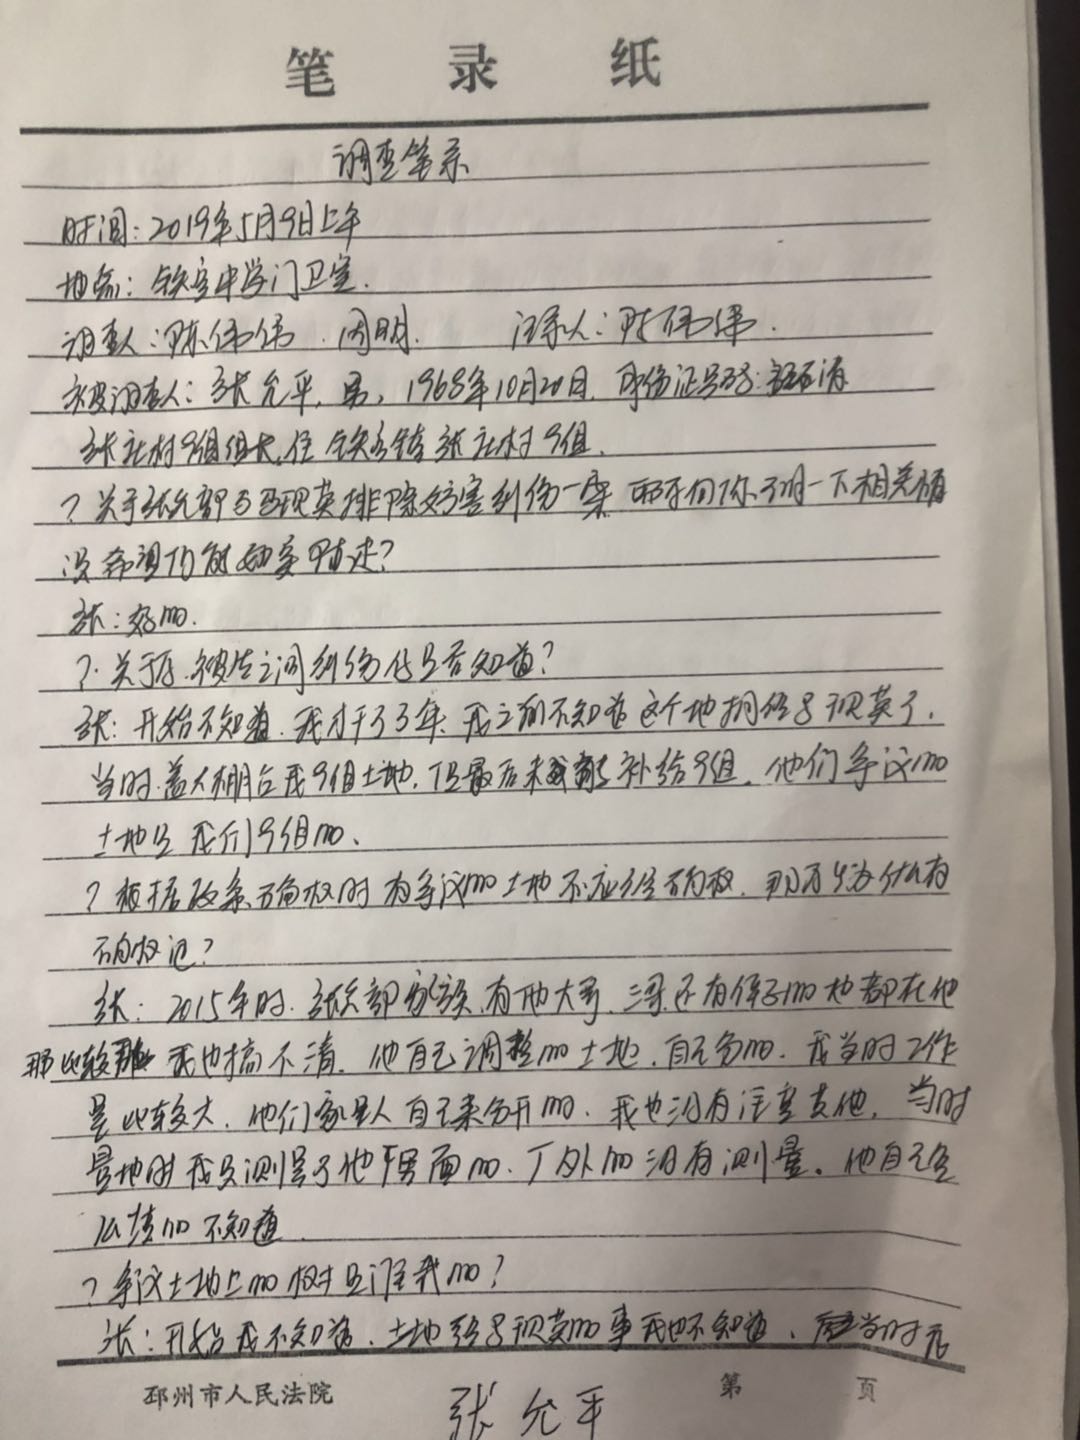 笔录纸
调查笔录
时间：2019年5月9日上午
地点：铁富中学门卫室.
调查人：陈伟伟.周明. 记录人：陈伟伟.
被调查人：张允平,男,1968年10月20日,身份证号码:
张庄村9组组长,住铁富镇张庄村9组.
?关于张允部与 现英排除妨害纠纷一案 向你了解一下相关情
况希望你能如实陈述?
张:好的.
?.关于原.被告之间纠纷你是否知道?
张:开始不知道.我才干了3年.我之前不知道这个地 给 现英了.
当时.盖大棚占我9组土地,但最后未 补给9组,他们争议的
土地是我们9组的、
?根据政策确权时有争议的土地不应该确权.那 为什么有
确权证?
张:2015年时.张允部家族,有他大哥.三哥.还有侄子的地都在他
那 我也搞不清.他自己调整的土地.自己分的.我当时工作
量比较大.他们家里人自己来分开的.我也没有注意其他,当时
量地时我只测量了他 面的.丁外的没有测量。他自己怎
么填的不知道
?争议土地上的树是谁栽的?
张:开始我不知道.土地给 现英的事我也不知道、 当时
邳州市人民法院 第 页
张允平